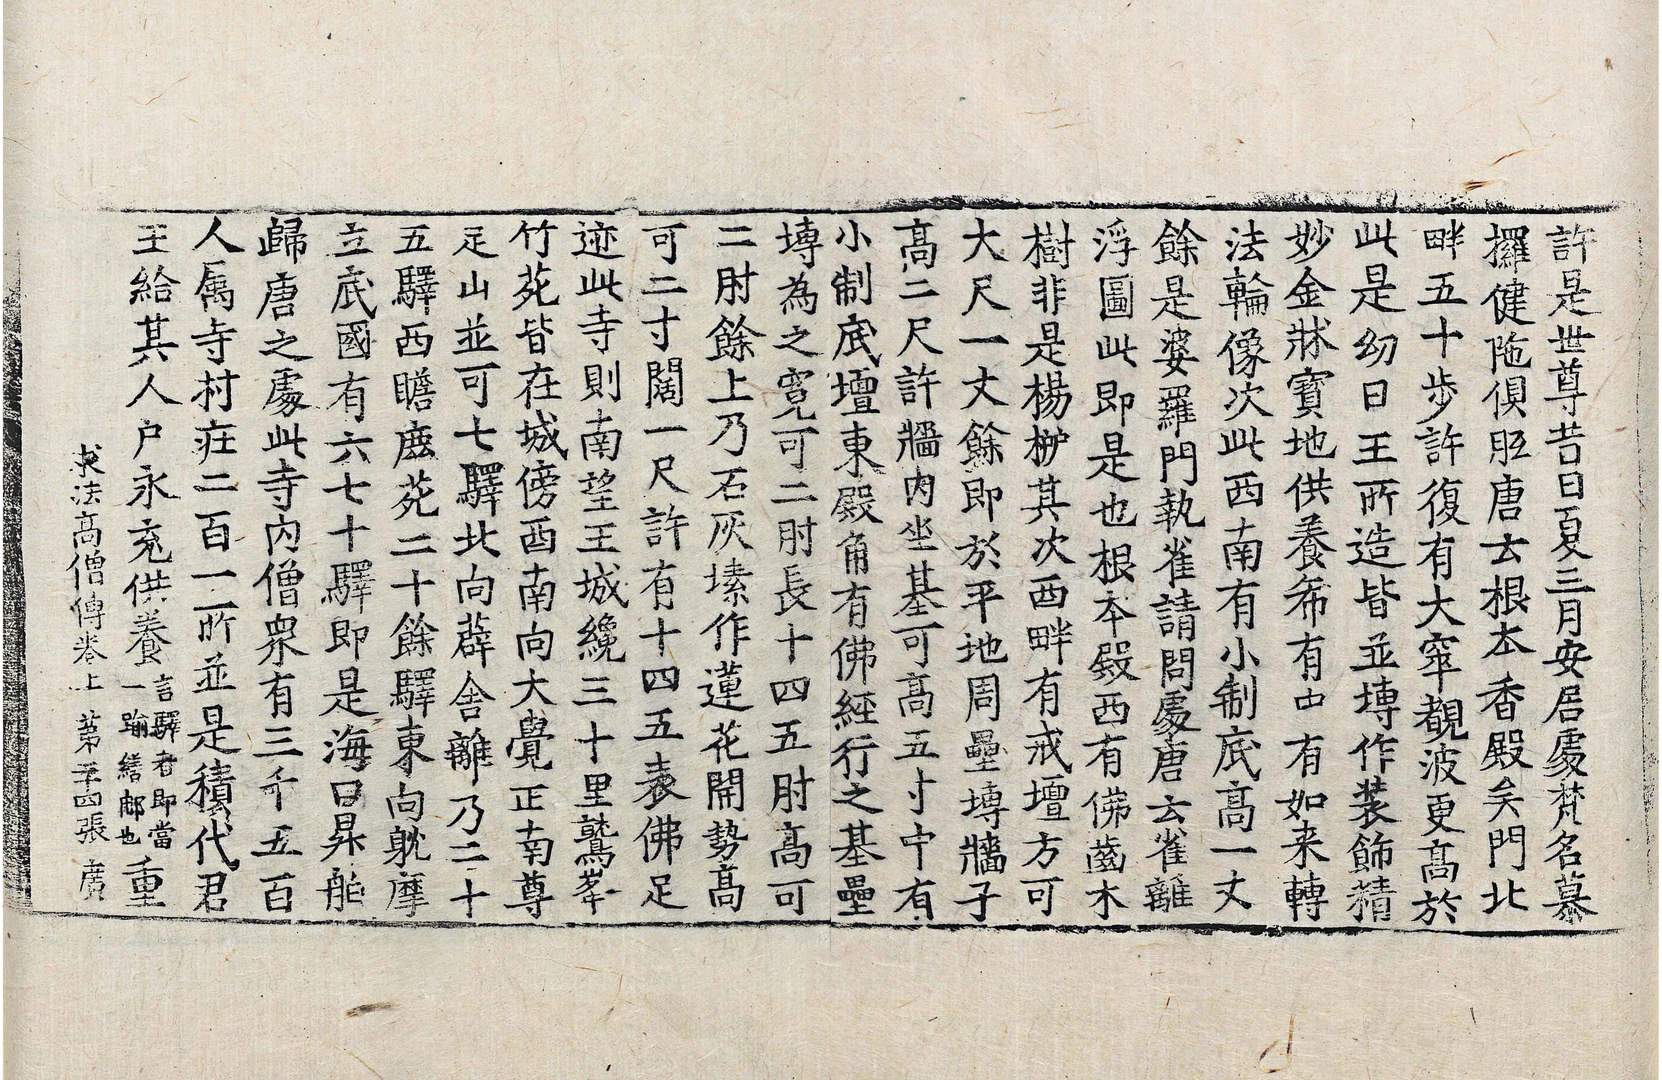 許是世尊昔日夏三月安居處梵名慕
攞健陁俱胝唐云根本香殿矣門北
畔五十步許復有大窣覩波更高於
此是幼日王所造皆並塼作装飾精
妙金牀寶地供養希有中有如来轉
法輪像次此西南有小制底高一丈
餘是婆羅門執雀請問處唐云雀離
浮圖此即是也根本殿西有佛齒木
樹非是楊柳其次西畔有戒壇方可
大尺一丈餘即於平地周壘塼牆子
高二尺許牆内坐基可高五寸中有
小制底壇東殿角有佛經行之基壘
塼為之寛可二肘長十四五肘高可
二肘餘上乃石灰塐作蓮花開勢高
可二寸闊一尺許有十四五表佛足
迹此寺則南望王城纔三十里鷲峯
竹苑皆在城傍西南向大覺正南尊
足山並可七驛北向薜舍離乃二十
五驛西瞻鹿苑二十餘驛東向躭摩
立底國有六七十驛即是海口昇舶
歸唐之處此寺内僧衆有三千五百
人属寺村庄二百一所並是積代君
王給其人户永充供養言驛者即當一踰繕郍也重
求法高僧傳卷上 第二十四張 廣